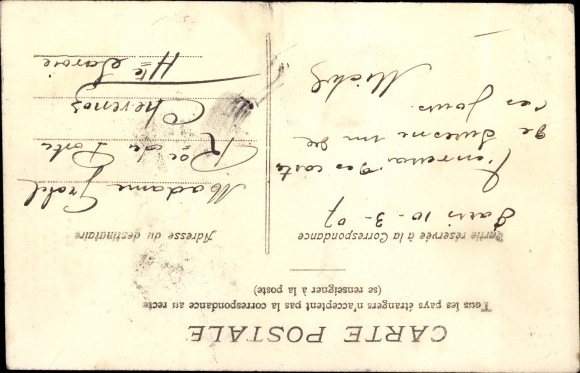 CARTE POSTALE
Tous les pays étrangers n'acceptent pas la correspondance au recto
(se renseigner à la poste)
Partie réservée à la Correspondance
Paris 10-3-07
J'enverrai des cartes
de Suresne un de
ces jours.
Michel
Adresse du destinataire
Madame
Rte de
Chevenoz
Hte Savoie